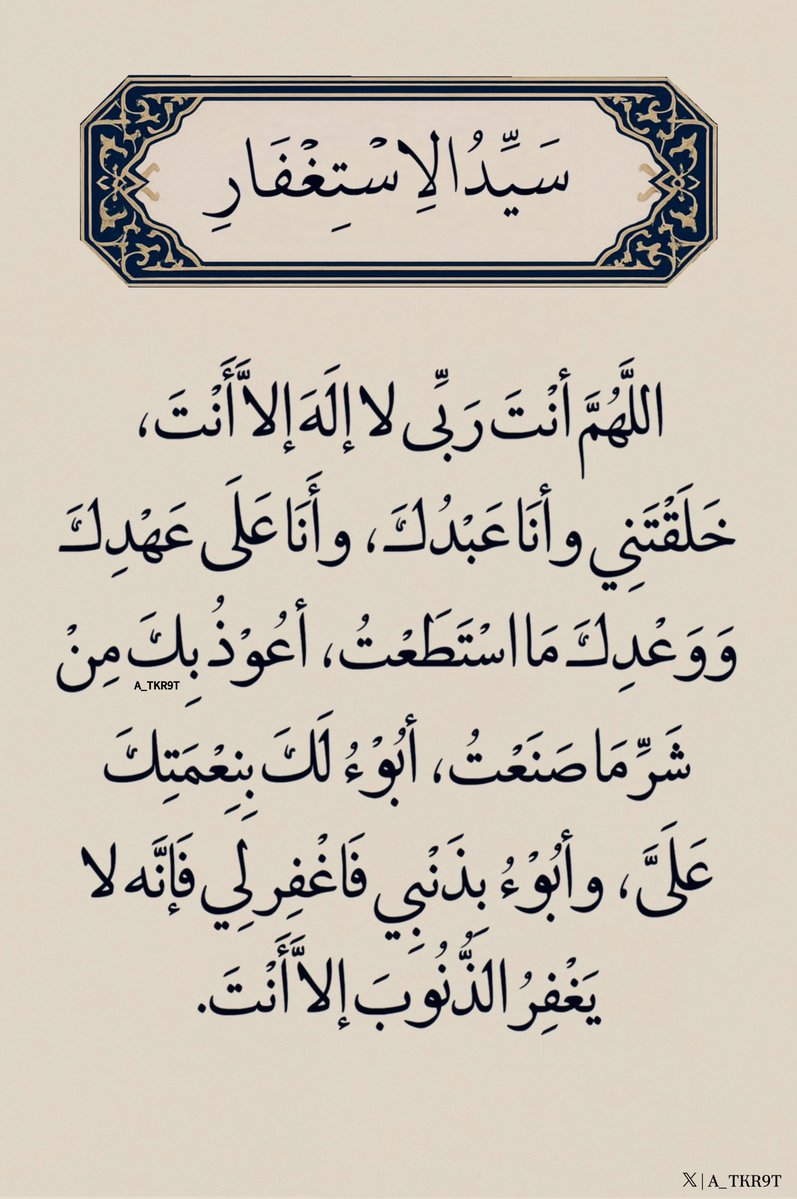 سَيِّدُ الِاسْتِغْفَارِ
اللَّهُمَّ أنْتَ رَبِّى لا إلَهَ إلاَّ أَنْتَ،
خَلَقْتَنِي وأنَا عَبْدُكَ، وأَنَا عَلَى عَهْدِكَ
وَوَعْدِكَ مَا اسْتَطَعْتُ، أعُوْذُ بِكَ مِنْ
A_TKR9T
شَرِّ مَا صَنَعْتُ، أبُوْءُ لَكَ بِنِعْمَتِكَ
عَلَىَّ، وأبُوْءُ بِذَنْبِي فَاغْفِر لِي فَإنَّه لا
يَغْفِرُ الذُّنُوبَ إلاَّ أَنْتَ.
𝕏 | A_TKR9T